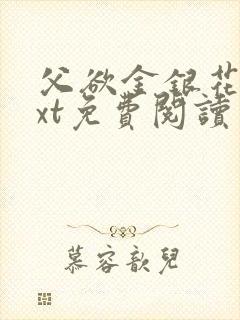 父欲金銀花
xt免費閱讀
慕容歆兒